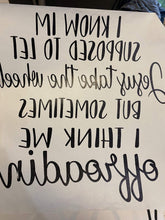 I KNOW IM
SUPPOSED TO LET
Jesus take the wheel
BUT SOMETIMES
I THINK WE
offroadin